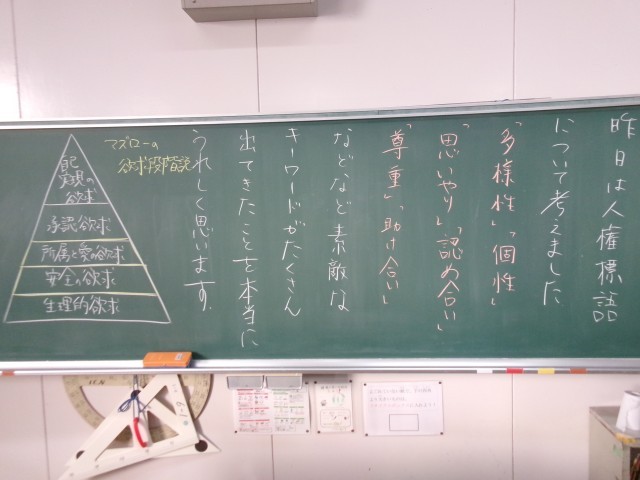 昨日は人権標語
について考えました
「多様性」「個性」
「思いやり」「認め合い」
「尊重」「助け合い」
などなど素敵な
キーワードがたくさん
出てきたことを本当に
うれしく思います。
マズローの
欲求段階説
自己
実現の
欲求
承認欲求
所属と愛の欲求
安全の欲求
生理的欲求